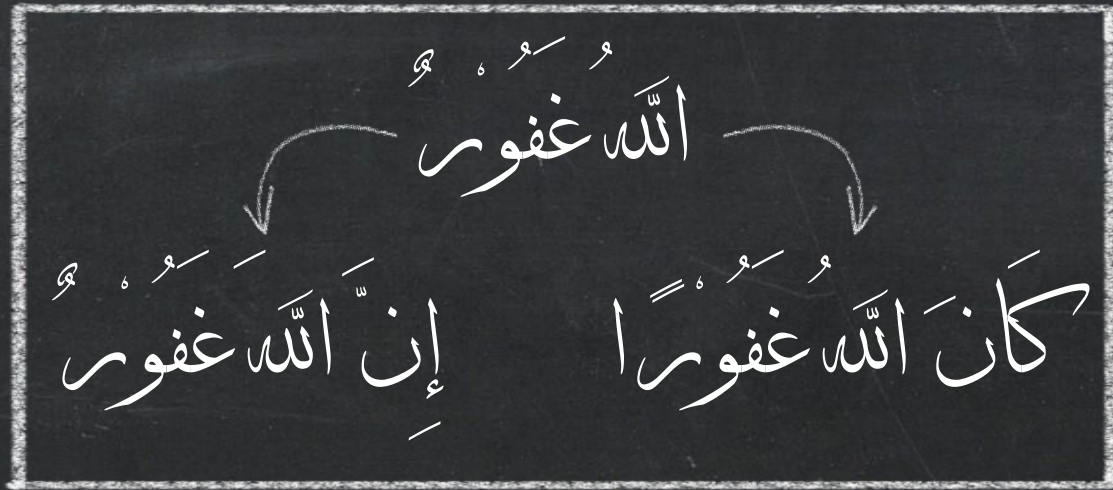 اللهُ غَفُوْرٌ
كَانَ اللهُ غَفُوْرًا إِنَّ اللهَ غَفُوْرٌ